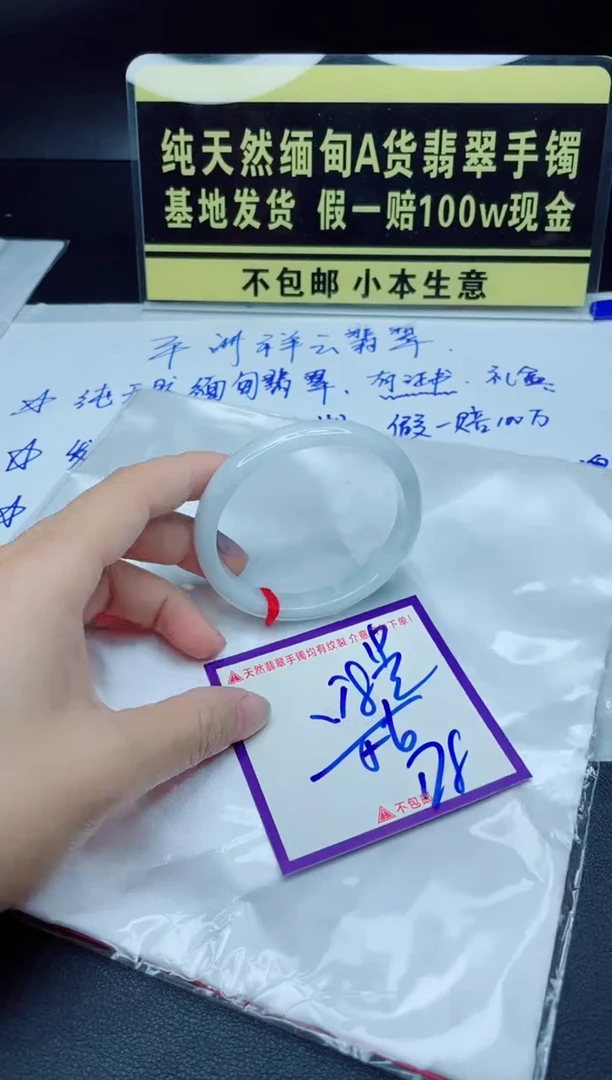 纯天然缅甸A货翡翠手镯
基地发货 假一赔100w现金
不包邮 小本生意
平洲祥云翡翠.
☆ 纯天然缅甸翡翠、有证书、礼盒
☆ 发 假一赔100万
☆
天然翡翠手镯均有纹裂 介意 下单!
不包邮